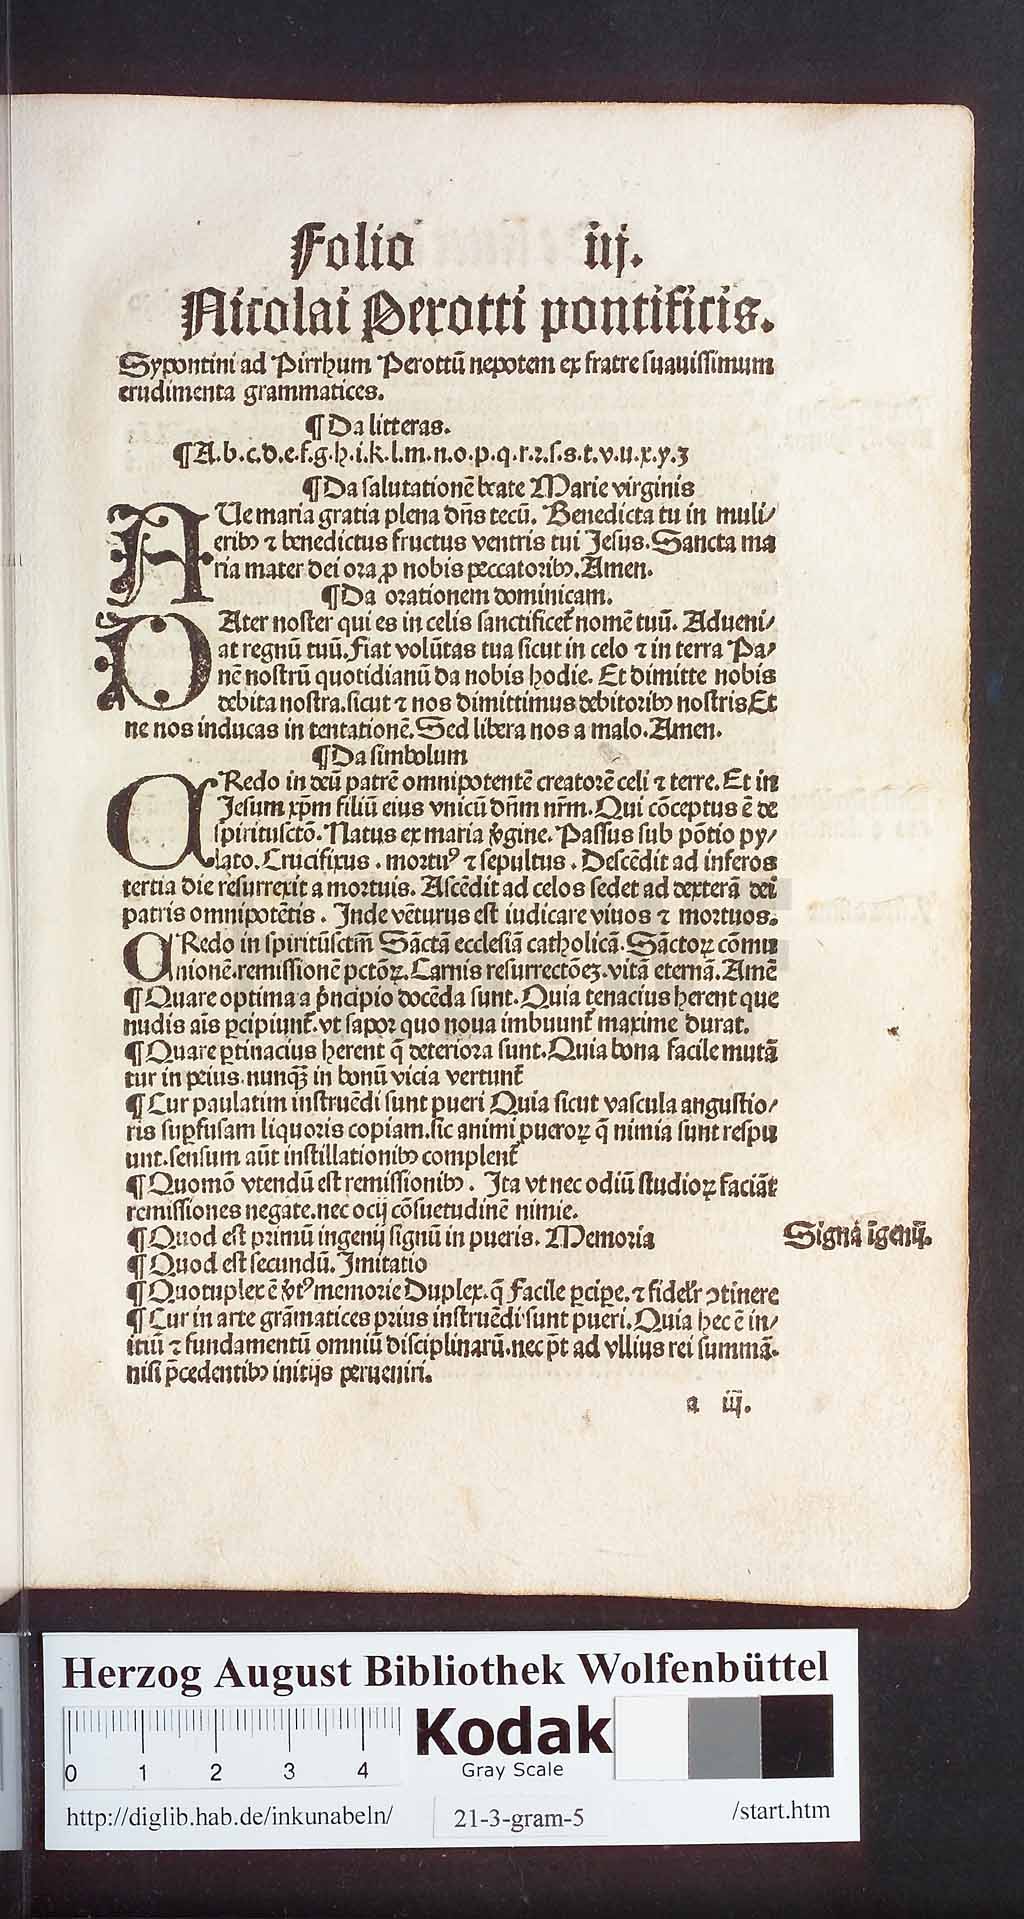 Folio iij.
Nicolai Perotti pontificis.
Sypontini ad Pirrhum Perottū nepotem ex fratre suauissimum
erudimenta grammatices.
¶ Da litteras.
¶ A.b.c.d.e.f.g.h.i.k.l.m.n.o.p.q.r.ꝛ.ſ.s.t.v.u.x.y.ʒ
¶ Da salutationē beate Marie virginis
AUe maria gratia plena dñs tecū. Benedicta tu in muli/
eribꝯ ⁊ benedictus fructus ventris tui Jesus. Sancta ma
ria mater dei ora ꝓ nobis peccatoribꝯ. Amen.
¶ Da orationem dominicam.
PAter noster qui es in celis sanctificet᷑ nomē tuū. Adueni/
at regnū tuū. fiat volūtas tua sicut in celo ⁊ in terra Pa/
nē nostrū quotidianū da nobis hodie. Et dimitte nobis
debita nostra. sicut ⁊ nos dimittimus debitoribꝯ nostris Et
ne nos inducas in tentationē. Sed libera nos a malo. Amen.
¶ Da simbolum
CRedo in deū patrē omnipotentē creatorē celi ⁊ terre. Et in
Jesum xp̄m filiū eius vnicū dñm nr̄m. Qui cōceptus ē de
spiritusctō. Natus ex maria v̓gine. Passus sub pōtio py/
lato. Crucifixus . mortuꝰ ⁊ sepultus . Descēdit ad inferos
tertia die resurrexit a mortuis. Ascēdit ad celos sedet ad dexterā dei
patris omnipotētis . Inde vēturus est iudicare viuos ⁊ mortuos.
CRedo in spiritūsctm̄ Sāctā ecclesiā catholicā. Sāctoꝝ cōmu
nionē. remissionē pctōꝝ. Carnis resurrectōeʒ. vitā eternā. Amē
¶ Quare optima a p̓ncipio docēda sunt. Quia tenacius herent que
nudis aīs ꝑcipiunt᷑. vt sapor quo noua imbuunt᷑ maxime durat.
¶ Quare ꝑtinacius herent q̄ deteriora sunt. Quia bona facile mutā
tur in peius. nunqꝫ in bonū vicia vertunt᷑
¶ Cur paulatim instruēdi sunt pueri Quia sicut vascula angustio/
ris suꝑfusam liquoris copiam. sic animi pueroꝝ q̄ nimia sunt respu
unt. sensum aūt instillationibꝯ complent᷑
¶ Quomō vtendū est remissionibꝯ . Ita vt nec odiū studioꝝ faciāt
remissiones negate. nec ocij cōsuetudinē nimie.
¶ Quod est primū ingenij signū in pueris. Memoria
Signa īgenij.
¶ Quod est secundū. Imitatio
¶ Quotuplex ē v̓tꝰ memorie Duplex. q̄ facile ꝑcipe. ⁊ fidelr̄ ꝯtinere
¶ Cur in arte grāmatices prius instruēdi sunt pueri. Quia hec ē in/
itiū ⁊ fundamentū omniū disciplinarū. nec pt̄ ad vllius rei summā.
nisi p̄cedentibꝯ initijs perueniri.
a iij.
Herzog August Bibliothek Wolfenbüttel
0 1 2 3 4
Kodak
Gray Scale
http://diglib.hab.de/inkunabeln/ 21-3-gram-5 /start.htm